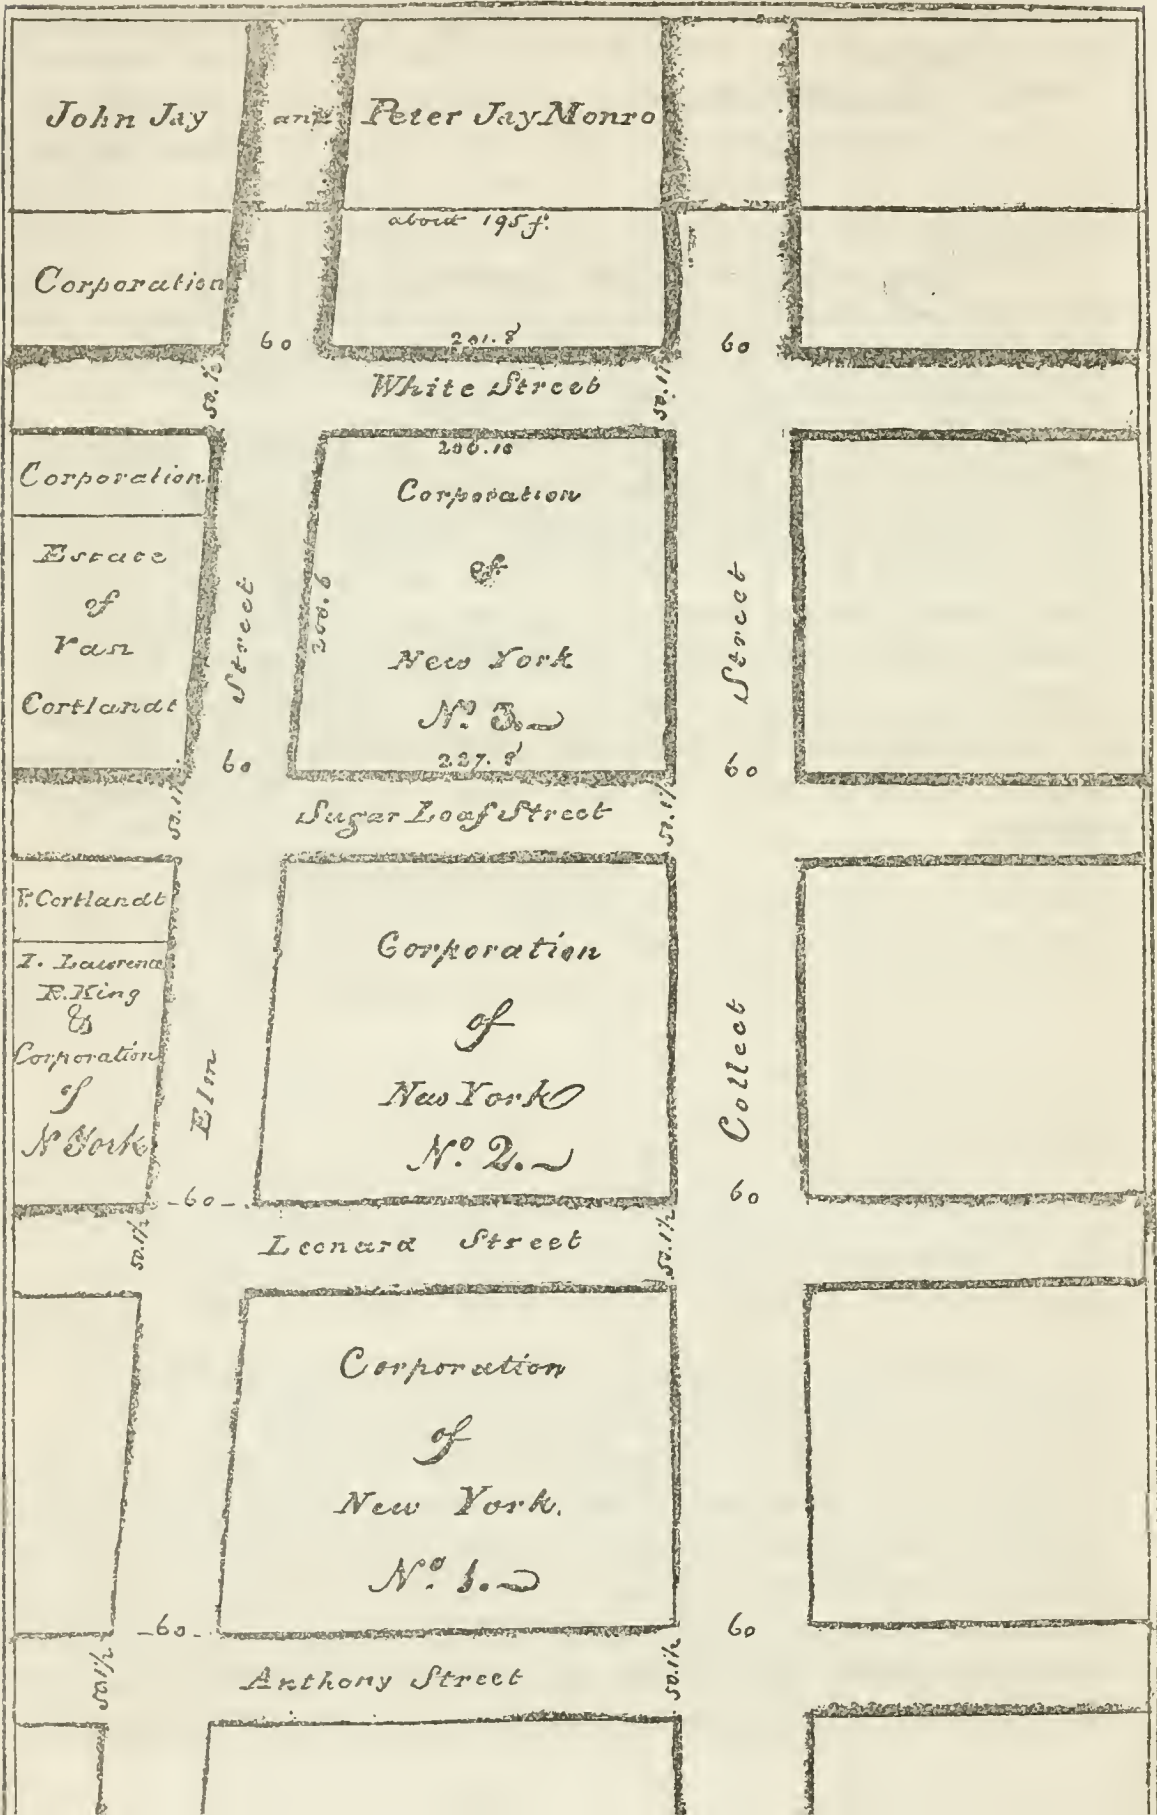 John Jay and Peter Jay Monro
about 195 f.
Corporation
60
201.8
60
White Street
50.1½
50.1½
206.10
Corporation
Corporation
of
New York
No. 3.
Estate
of
Van
Cortlandt
200.6
Street
Street
60
227.8
60
Sugar Loaf Street
50.1½
50.1½
V. Cortlandt
I. Lawrence
R. King
&
Corporation
of
N York
Elm
Corporation
of
New York
No. 2.
Collect
-60-
60
Leonard Street
50.1½
50.1½
Corporation
of
New York.
No. 1.
-60-
60
Anthony Street
50.1½
50.1½